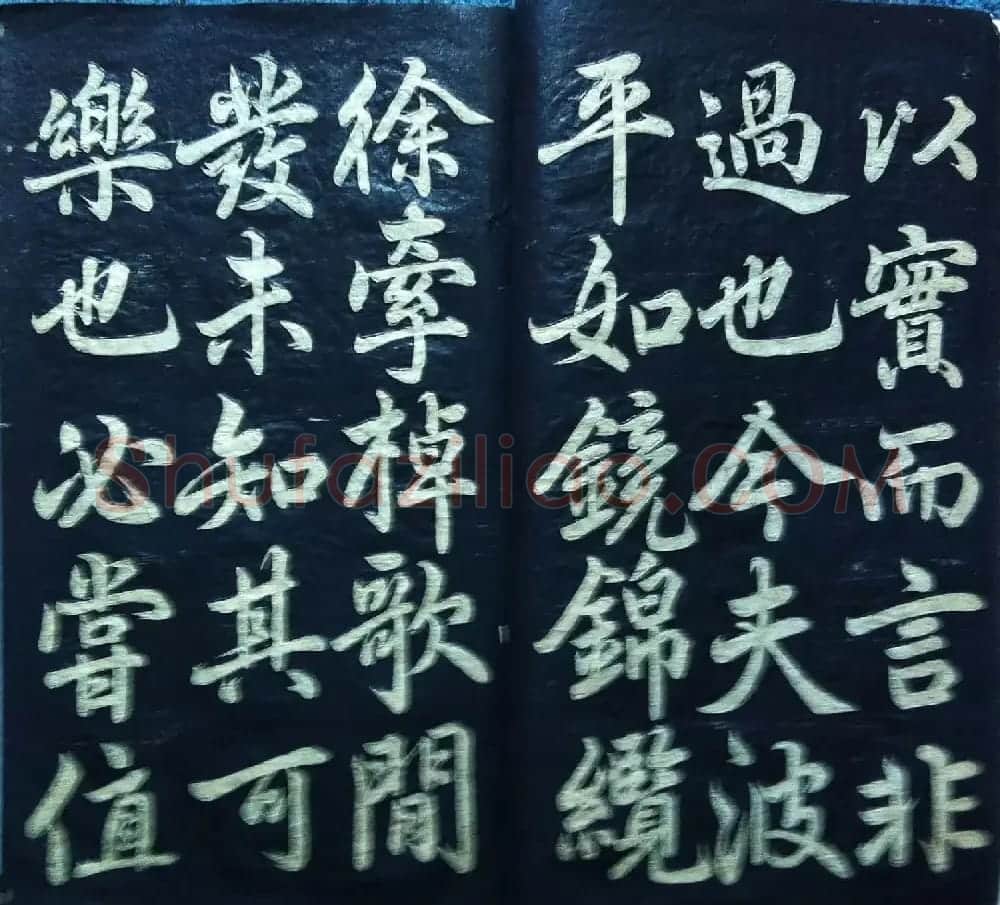 以實而言非
過也今夫波
平如鏡錦纜
徐牽棹歌間
發未知其可
樂也必嘗值
Shufaziliao.COM